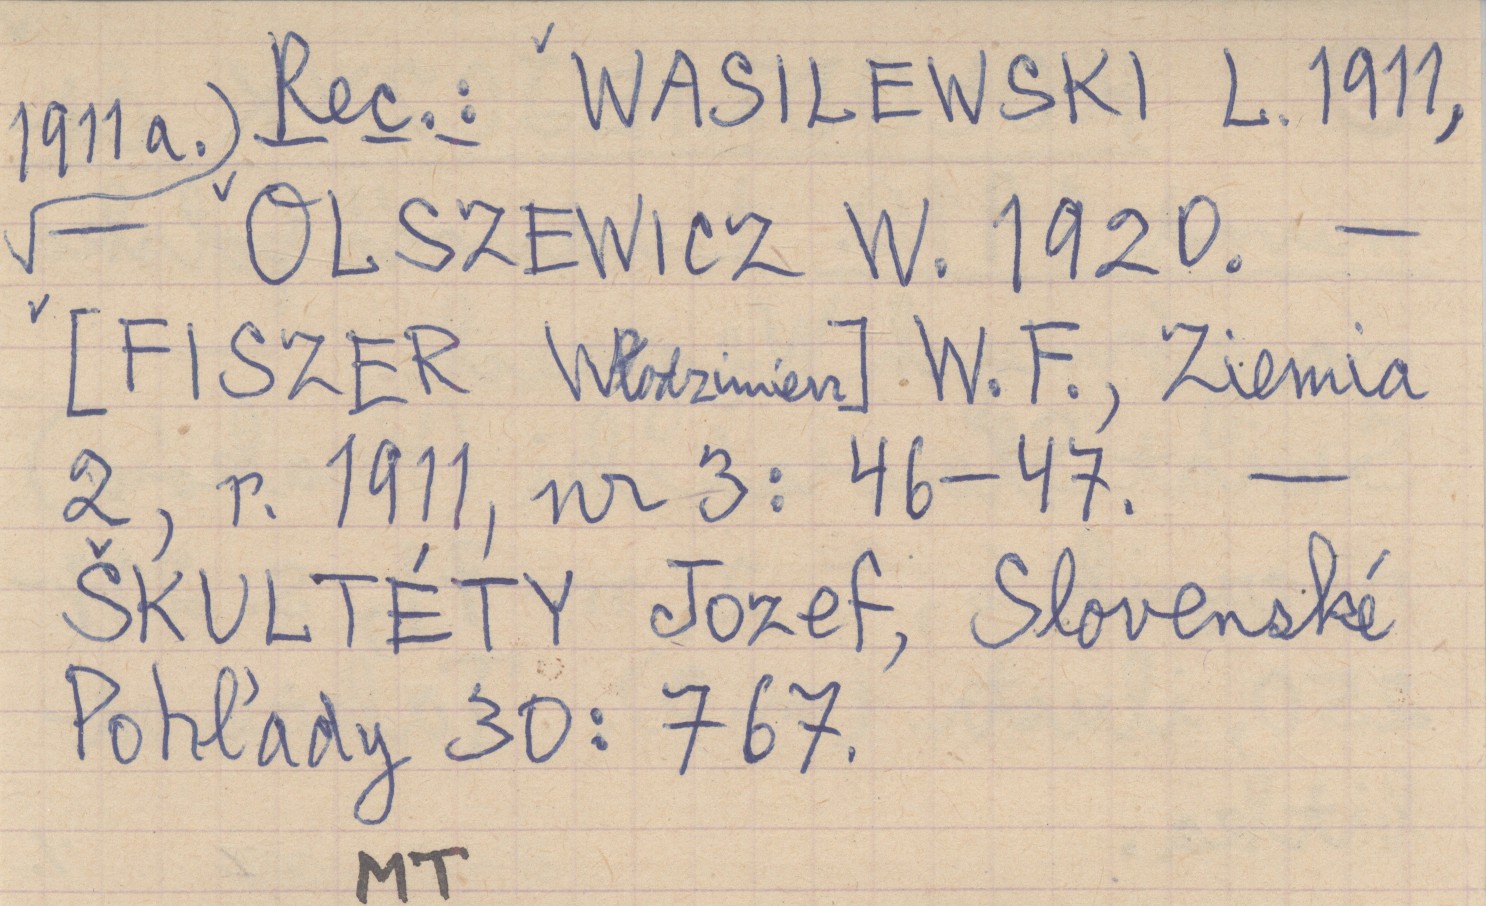 Rec.: WASILEWSKI L. 1911,
1911a.)
— OLSZEWICZ W. 1920. —
[FISZER Włodzimierz] W. F., Ziemia
2, r. 1911, nr 3: 46–47. —
ŠKULTÉTY Jozef, Slovenské
Pohľady 30: 767.
MT